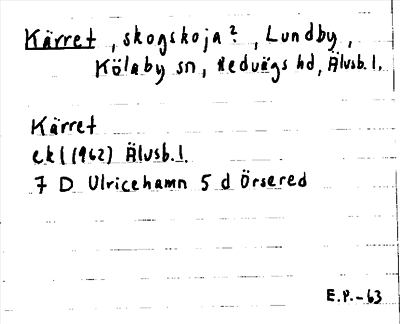 Kärret, skogskoja?, Lundby,
Kölaby sn, Redvägs hd, Älvsb. l.
Kärret
ek l (1962) Älvsb. l.
7 D Ulricehamn 5 d Örsered
E.P.-63